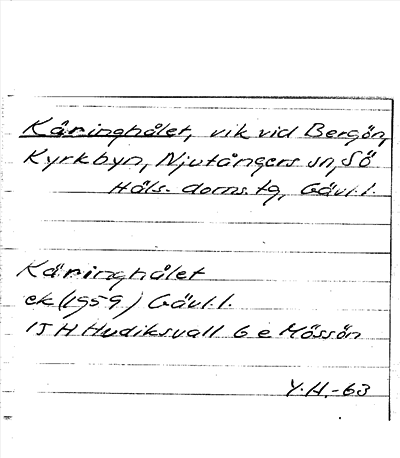 Käringhålet, vik vid Bergön,
Kyrkbyn, Njutångers sn, Sö
Häls. doms tg, Gävl. l.
Käringhålet
ek (1959) Gävl. l.
15 H Hudiksvall 6 e Mössön
Y.H.-63